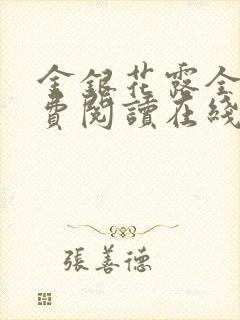 金銀花露全
費閱讀在綫
張善德